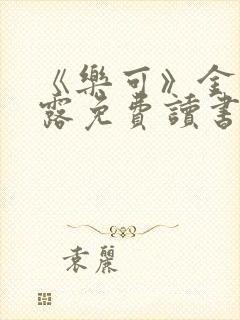 《樂可》金
露免費讀書
袁麗